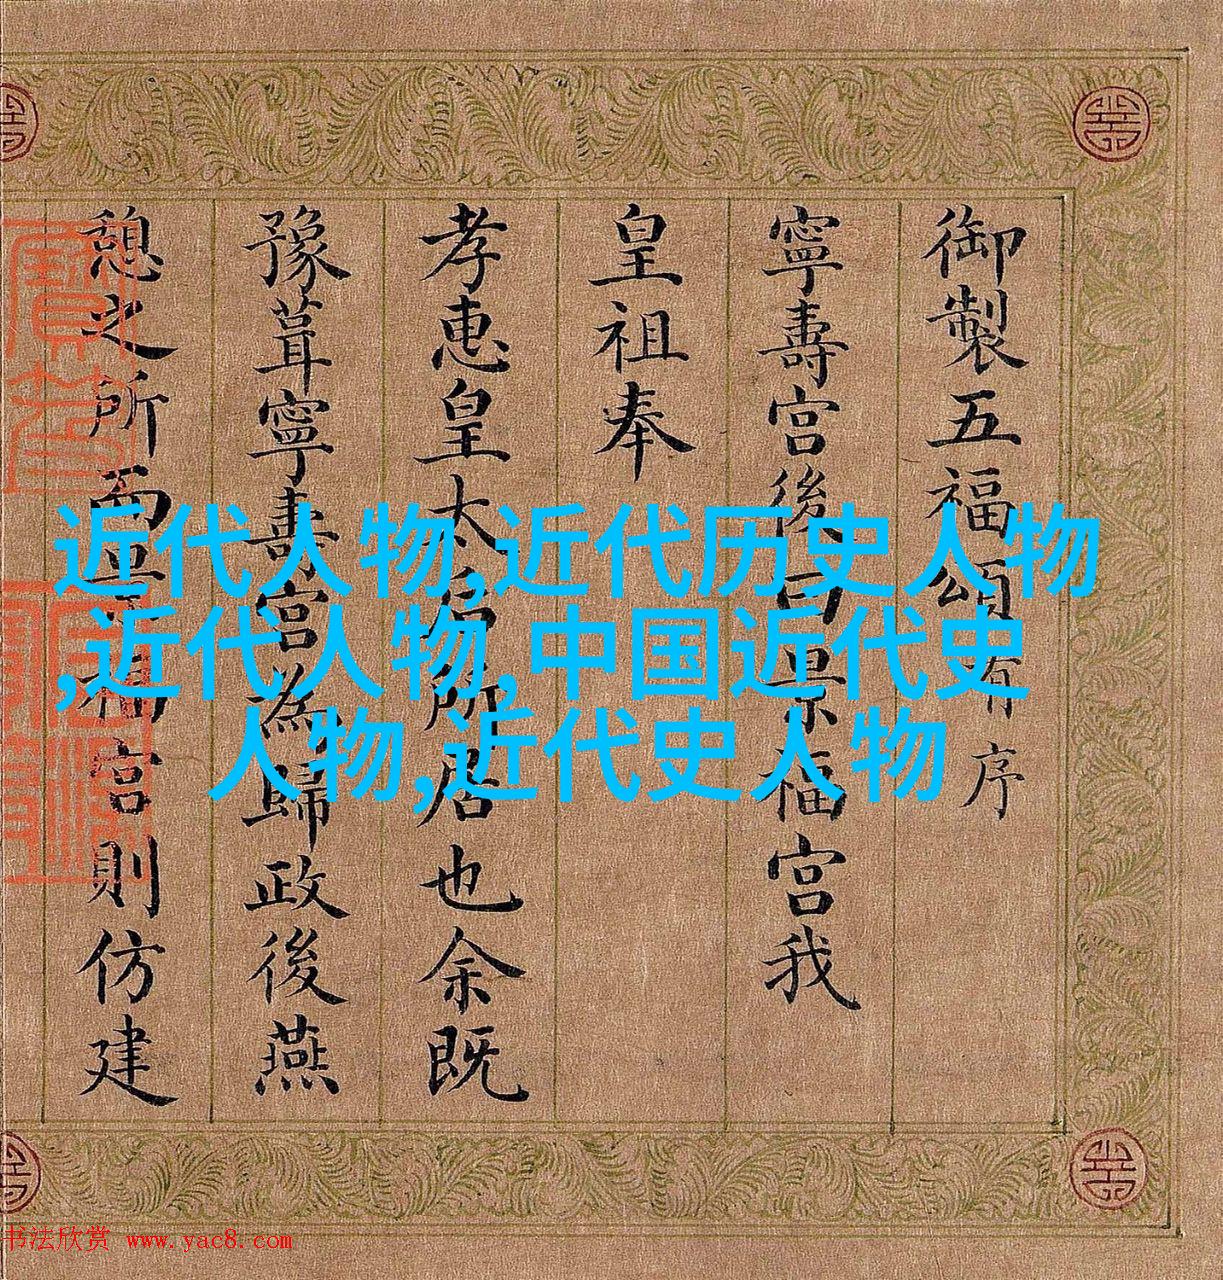 御製五福頌有序
寧壽宮後曰景福宮我
皇祖奉
孝惠皇太后所居也余既
豫葺寧壽宮為歸政後燕
憩之所而景福宮則仿建
近代人物,近代历史人物
,近代人物,中国近代史
人物,近代史人物
书法欣赏 www.yac8.com